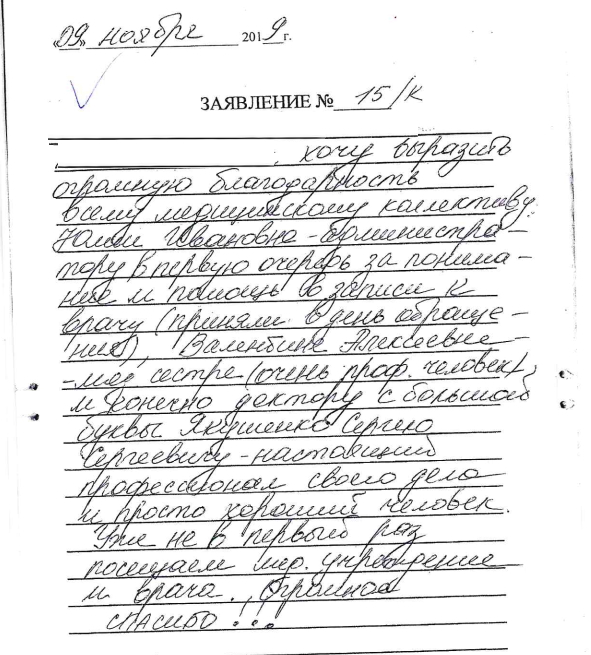 «09» ноября 2019 г.
ЗАЯВЛЕНИЕ № 15/К
, хочу выразить
огромную благодарность
всему медицинскому коллективу:
Юлии Ивановне - администра-
тору в первую очередь за понима-
ние и помощь в записи к
врачу (приняли в день обраще-
ния), Валентине Алексеевне -
- мед сестре (очень проф. человек),
и конечно доктору с большой
буквы Якушенко Сергею
Сергеевичу - настоящий
профессионал своего дела
и просто хороший человек.
Уже не в первый раз
посещаем мед. учреждение
и врача. Огромное
спасибо!!!